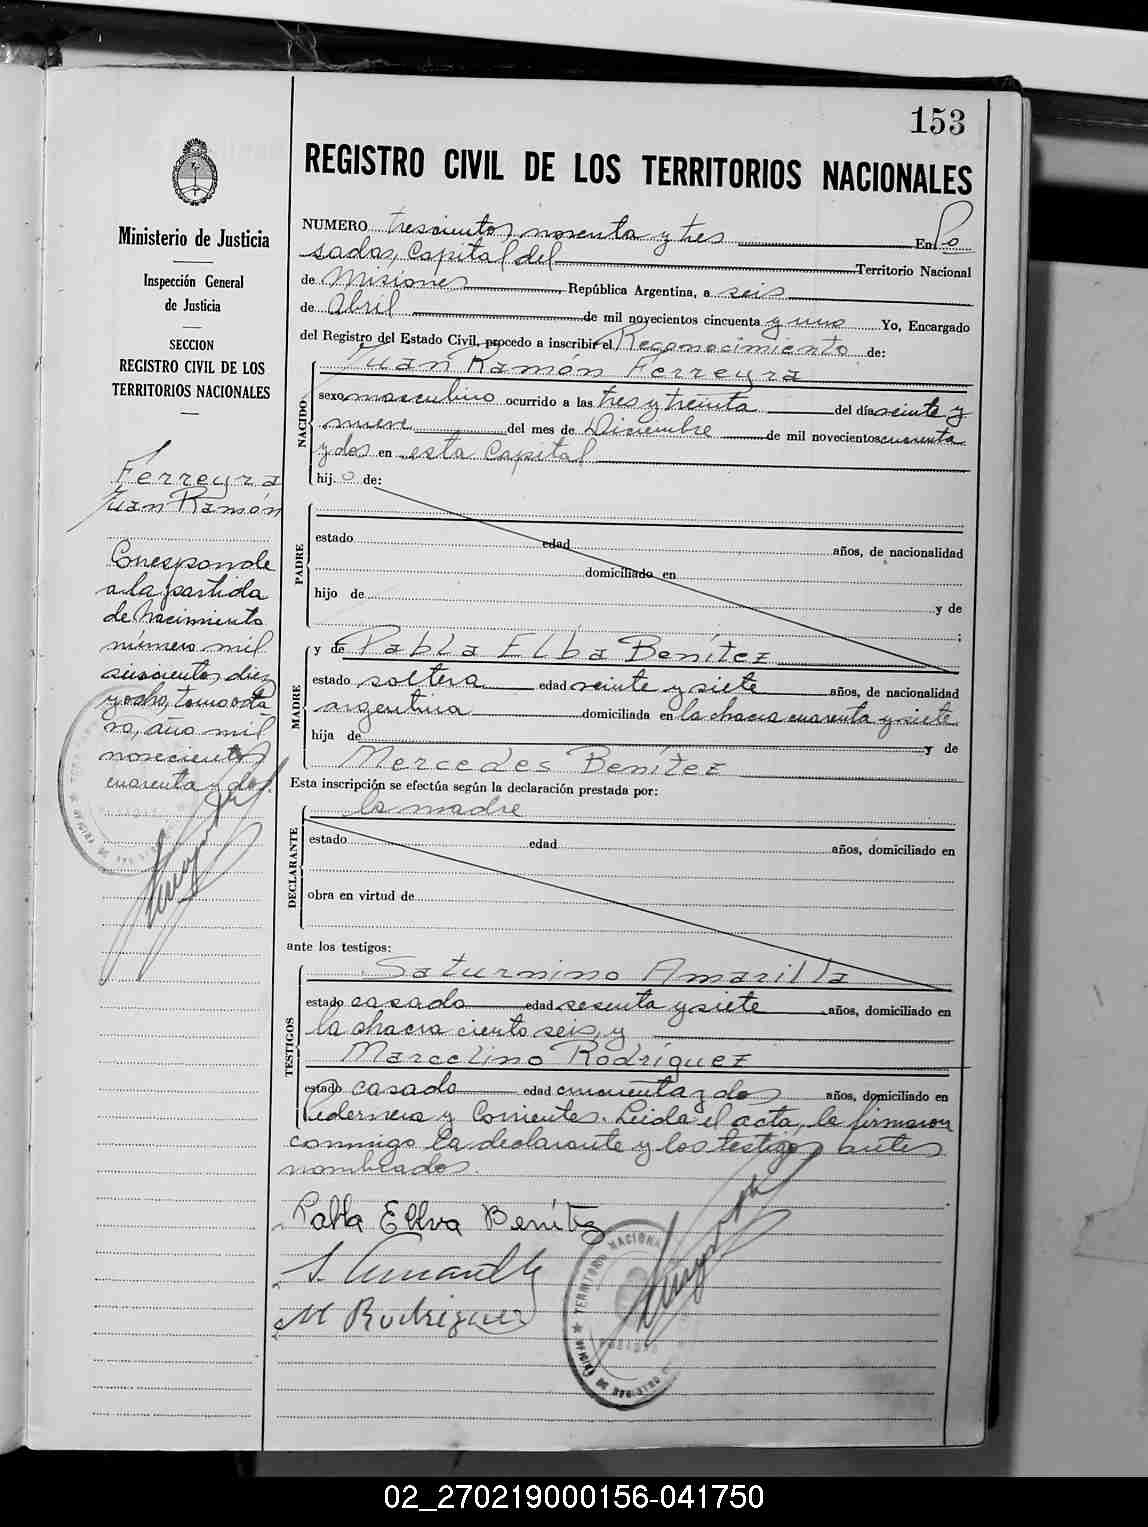 153
REGISTRO CIVIL DE LOS TERRITORIOS NACIONALES
Ministerio de Justicia
Inspección General
de Justicia
SECCION
REGISTRO CIVIL DE LOS
TERRITORIOS NACIONALES
Ferreyra
Juan Ramón
Corresponde
a la partida
de Nacimiento
número mil
seiscientos diez
y ocho, tomo octa
vo, año mil
novecientos
cuarenta y dos.
NUMERO trescientos noventa y tres En Po
sadas, Capital del Territorio Nacional
de Misiones, República Argentina, a seis
de Abril de mil novecientos cincuenta y uno Yo, Encargado
del Registro del Estado Civil, procedo a inscribir el Reconocimiento de:
Juan Ramón Ferreyra
NACIDO
sexo masculino ocurrido a las tres y treinta del día veinte y
nueve del mes de Diciembre de mil novecientos cuarenta
y dos en esta Capital
hijo de:
PADRE
estado edad años, de nacionalidad
domiciliado en
hijo de y de
;
y de Pabla Elba Benítez
MADRE
estado soltera edad veinte y siete años, de nacionalidad
argentina domiciliada en la chacra cuarenta y siete
hija de y de
Mercedes Benítez
Esta inscripción se efectúa según la declaración prestada por:
la madre
DECLARANTE
estado edad años, domiciliado en
obra en virtud de
ante los testigos:
Saturnino Amarilla
TESTIGOS
estado casado edad sesenta y siete años, domiciliado en
la chacra ciento seis, y
Marcelino Rodríguez
estado casado edad cincuenta y dos años, domiciliado en
Pedernera y Corrientes. Leida el acta, la firmaron
conmigo la declarante y los testigos antes
nombrados.
Pabla Ellva Benítez
S. Amarilla
M Rodriguez
TERRITORIO NACIONAL
02_270219000156-041750